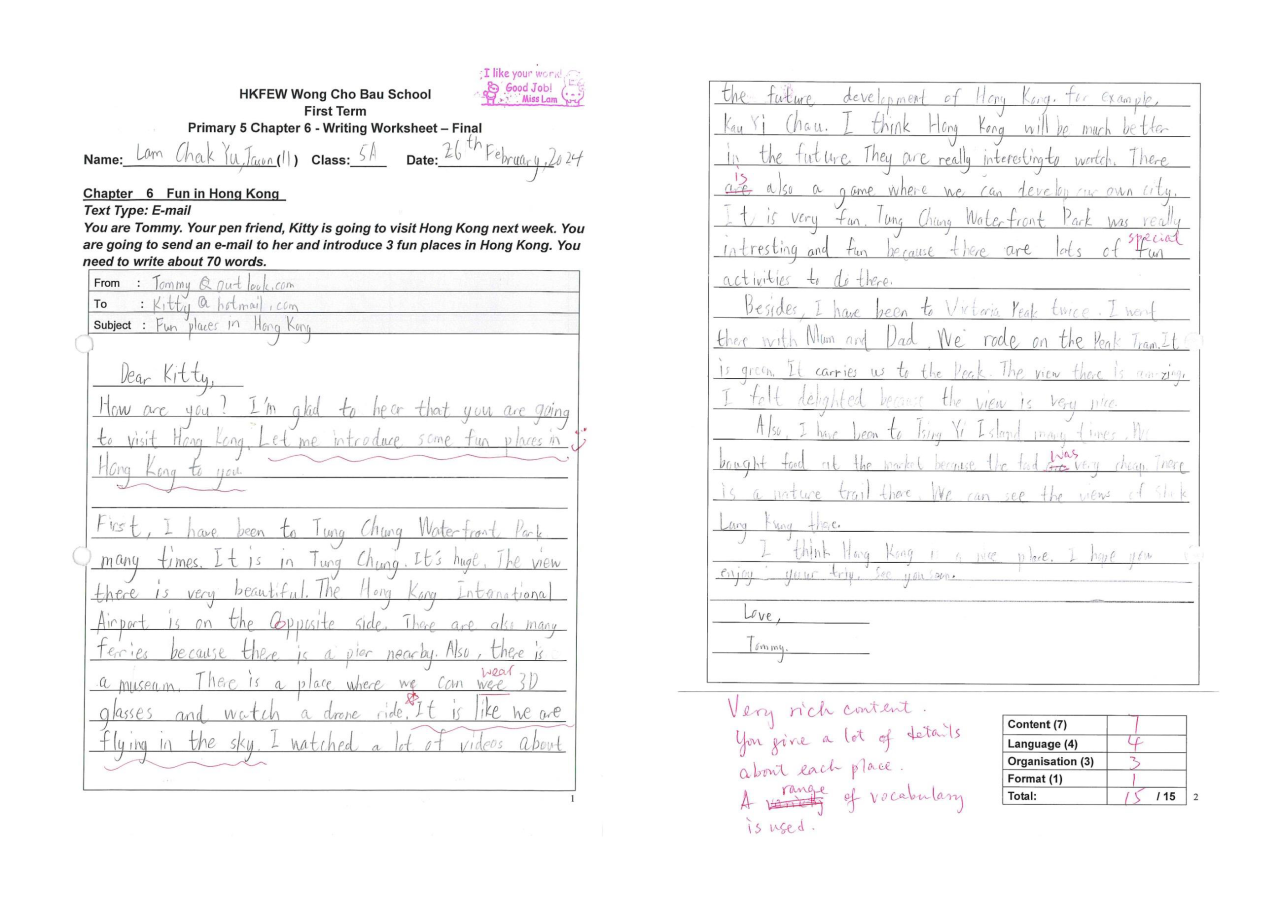 I like your work!
Good Job!
Miss Lam
HKFEW Wong Cho Bau School
First Term
Primary 5 Chapter 6 - Writing Worksheet – Final
Name: Lam Chak Yu, Jason (11) Class: 5A Date: 26th February, 2024
Chapter 6 Fun in Hong Kong
Text Type: E-mail
You are Tommy. Your pen friend, Kitty is going to visit Hong Kong next week. You
are going to send an e-mail to her and introduce 3 fun places in Hong Kong. You
need to write about 70 words.
From : Tommy @ outlook.com
To : Kitty @ hotmail.com
Subject : Fun places in Hong Kong
Dear Kitty,
How are you? I'm glad to hear that you are going
to visit Hong Kong. Let me introduce some fun places in
Hong Kong to you.
First, I have been to Tung Chung Waterfront Park
many times. It is in Tung Chung. It's huge. The view
there is very beautiful. The Hong Kong Internationl
Airport is on the Opposite side. There are also many
ferries because there is a pier nearby. Also, there is
wear
a museum. There is a place where we can wee 3D
glasses and watch a drone ride. It is like we are
flying in the sky. I watched a lot of videos about
1
the future development of Hong Kong. for example,
Kau Yi Chau. I think Hong Kong will be much better
in the future. They are really interesting to watch. There
is
are also a game where we can develop our own city.
It is very fun. Tung Chung Waterfront Park was really
special
intresting and fun because there are lots of fun
activities to do there.
Besides, I have been to Victoria Peak twice. I went
there with Mum and Dad. We rode on the Peak Tram. It
is green. It carries us to the Peak. The view there is amazing.
I felt delighted because the view is very nice.
Also, I have been to Tsing Yi Island many times. We
was
bought food at the market because the food very cheap. There
is a nature trail there. We can see the views of
there.
I think Hong Kong is a nice place. I hope you
enjoy your trip. See you soon.
Love,
Tommy.
Very rich content.
You give a lot of details
about each place.
range
A variety of vocabulary
is used.
Content (7) 7
Language (4) 4
Organisation (3) 3
Format (1) 1
Total: 15 / 15
2